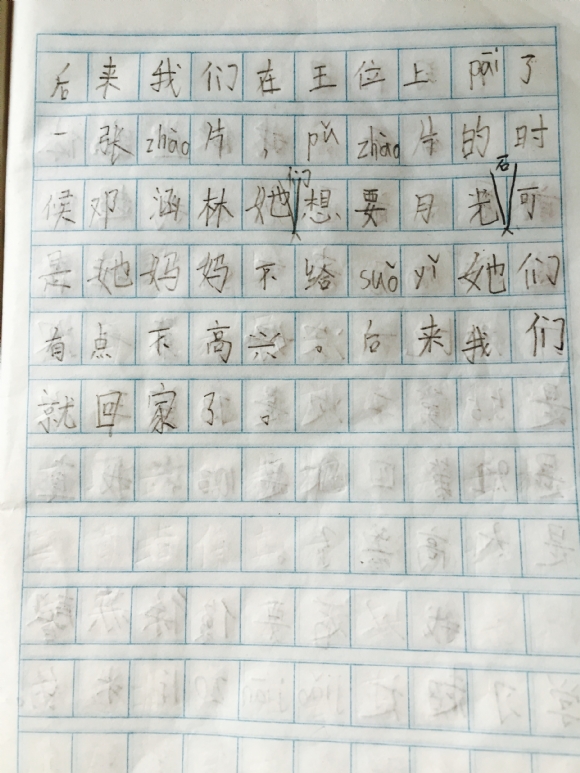 后来我们在王位上pāi了
一张zhào片，pǔzhào片的时
候邓涵林她们想要月光石可
是她妈妈不给suǒyǐ她们
有点不高兴。后来我们
就回家了。